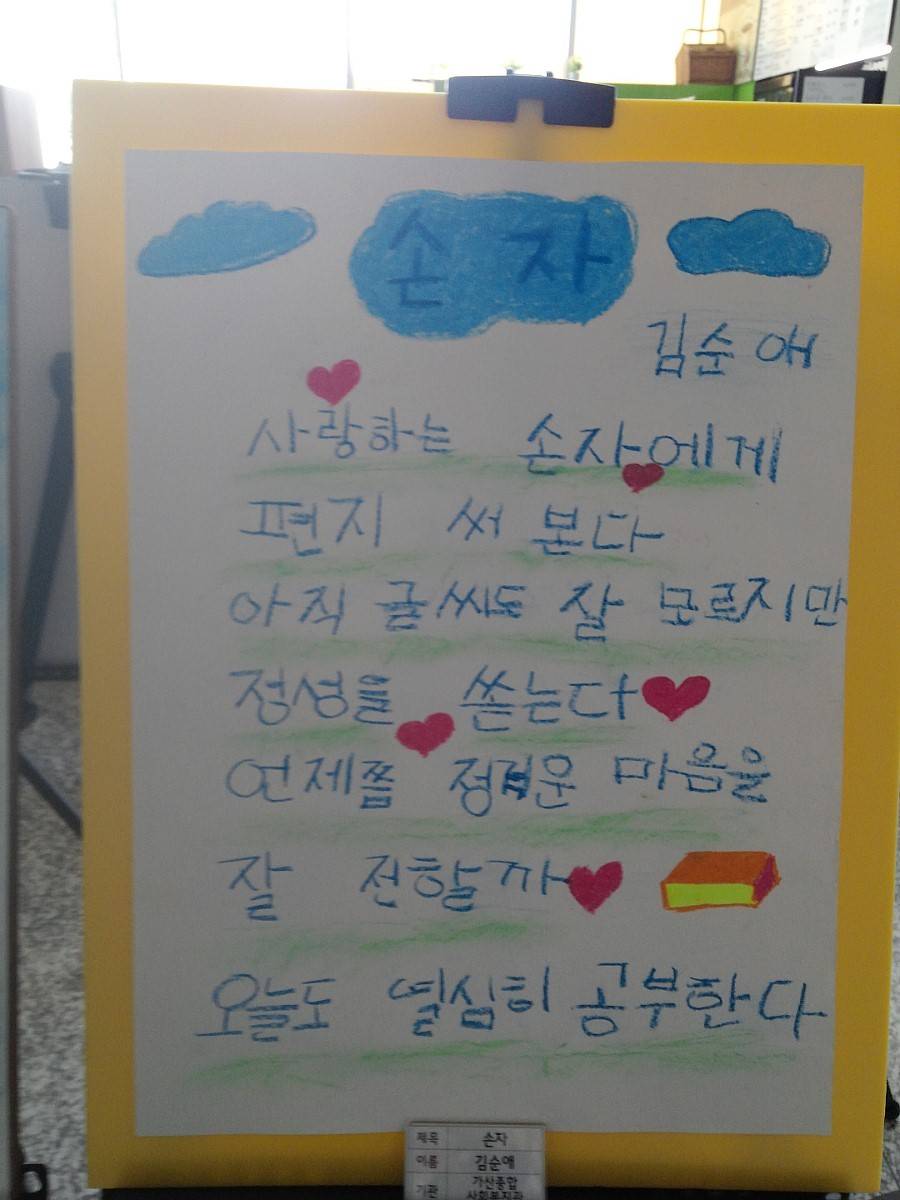 손자
김순애
사랑하는 손자에게
편지 써 본다
아직 글씨도 잘 모르지만
정성을 쏟는다
언제쯤 정겨운 마음을
잘 전할까
오늘도 열심히 공부한다
제목 손자
이름 김순애
기관 가산종합
사회복지관